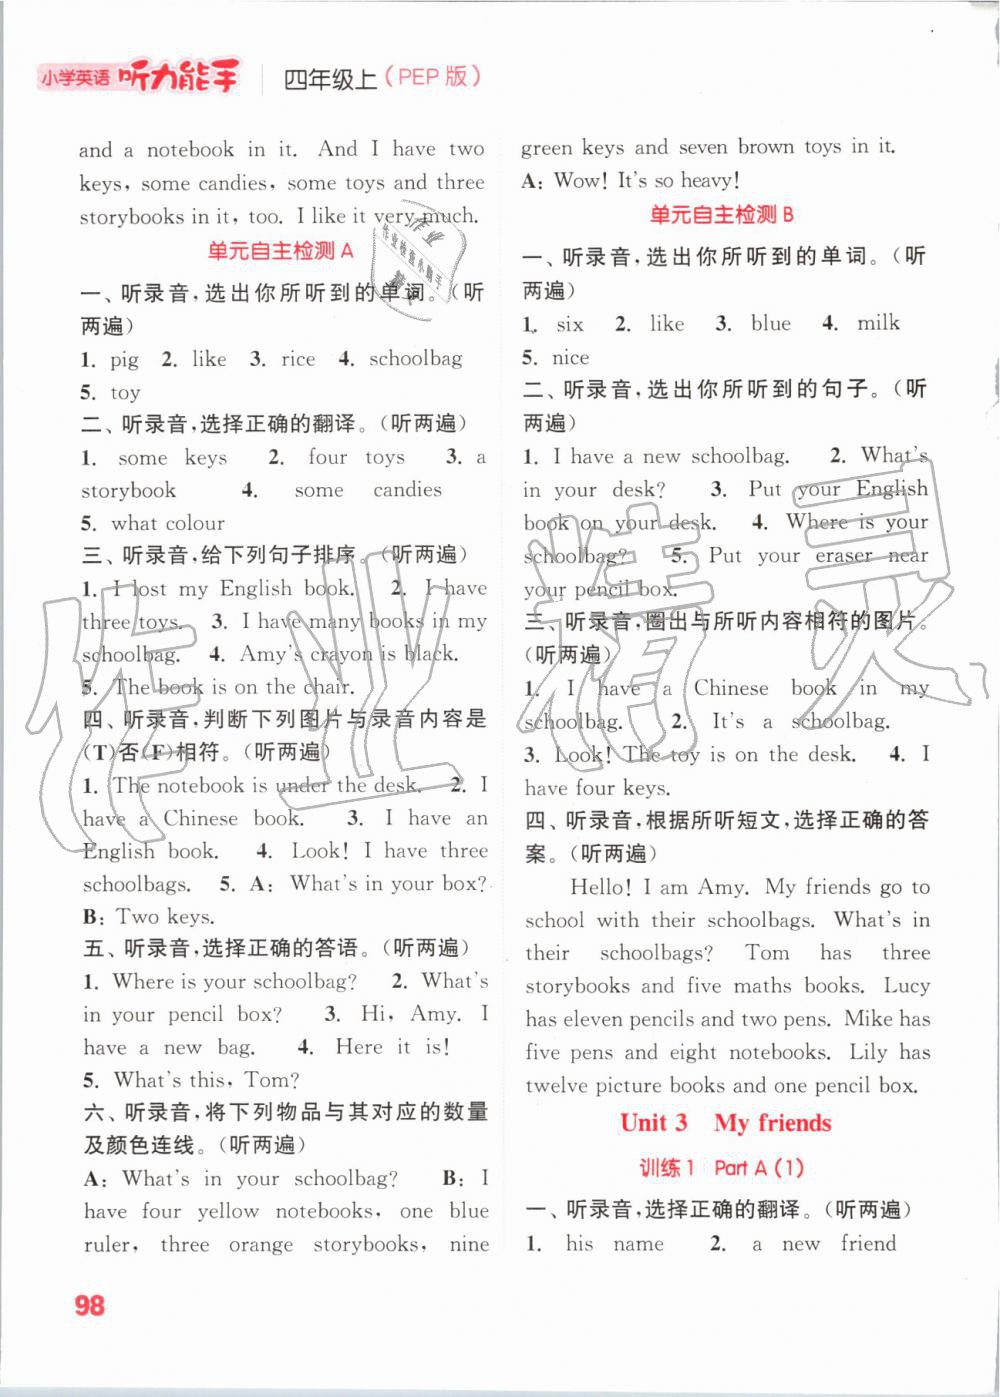 小学英语 听力能手 四年级上（PEP 版）
and a notebook in it. And I have two
keys, some candies, some toys and three
storybooks in it, too. I like it very much.
单元自主检测 A
一、听录音，选出你所听到的单词。（听
两遍）
1. pig 2. like 3. rice 4. schoolbag
5. toy
二、听录音，选择正确的翻译。（听两遍）
1. some keys 2. four toys 3. a
storybook 4. some candies
5. what colour
三、听录音，给下列句子排序。（听两遍）
1. I lost my English book. 2. I have
three toys. 3. I have many books in my
schoolbag. 4. Amy's crayon is black.
5. The book is on the chair.
四、听录音，判断下列图片与录音内容是
(T)否(F)相符。（听两遍）
1. The notebook is under the desk. 2. I
have a Chinese book. 3. I have an
English book. 4. Look! I have three
schoolbags. 5. A: What's in your box?
B: Two keys.
五、听录音，选择正确的答语。（听两遍）
1. Where is your schoolbag? 2. What's
in your pencil box? 3. Hi, Amy. I
have a new bag. 4. Here it is!
5. What's this, Tom?
六、听录音，将下列物品与其对应的数量
及颜色连线。（听两遍）
A: What's in your schoolbag? B: I
have four yellow notebooks, one blue
ruler, three orange storybooks, nine
green keys and seven brown toys in it.
A: Wow! It's so heavy!
单元自主检测 B
一、听录音，选出你所听到的单词。（听
两遍）
1. six 2. like 3. blue 4. milk
5. nice
二、听录音，选出你所听到的句子。（听
两遍）
1. I have a new schoolbag. 2. What's
in your desk? 3. Put your English
book on your desk. 4. Where is your
schoolbag? 5. Put your eraser near
your pencil box.
三、听录音，圈出与所听内容相符的图片。
（听两遍）
1. I have a Chinese book in my
schoolbag. 2. It's a schoolbag.
3. Look! The toy is on the desk. 4. I
have four keys.
四、听录音，根据所听短文，选择正确的答
案。（听两遍）
Hello! I am Amy. My friends go to
school with their schoolbags. What's in
their schoolbags? Tom has three
storybooks and five maths books. Lucy
has eleven pencils and two pens. Mike has
five pens and eight notebooks. Lily has
twelve picture books and one pencil box.
Unit 3 My friends
训练 1 Part A (1)
一、听录音，选择正确的翻译。（听两遍）
1. his name 2. a new friend
98
作业精灵
作业
作业检查小助手
精灵